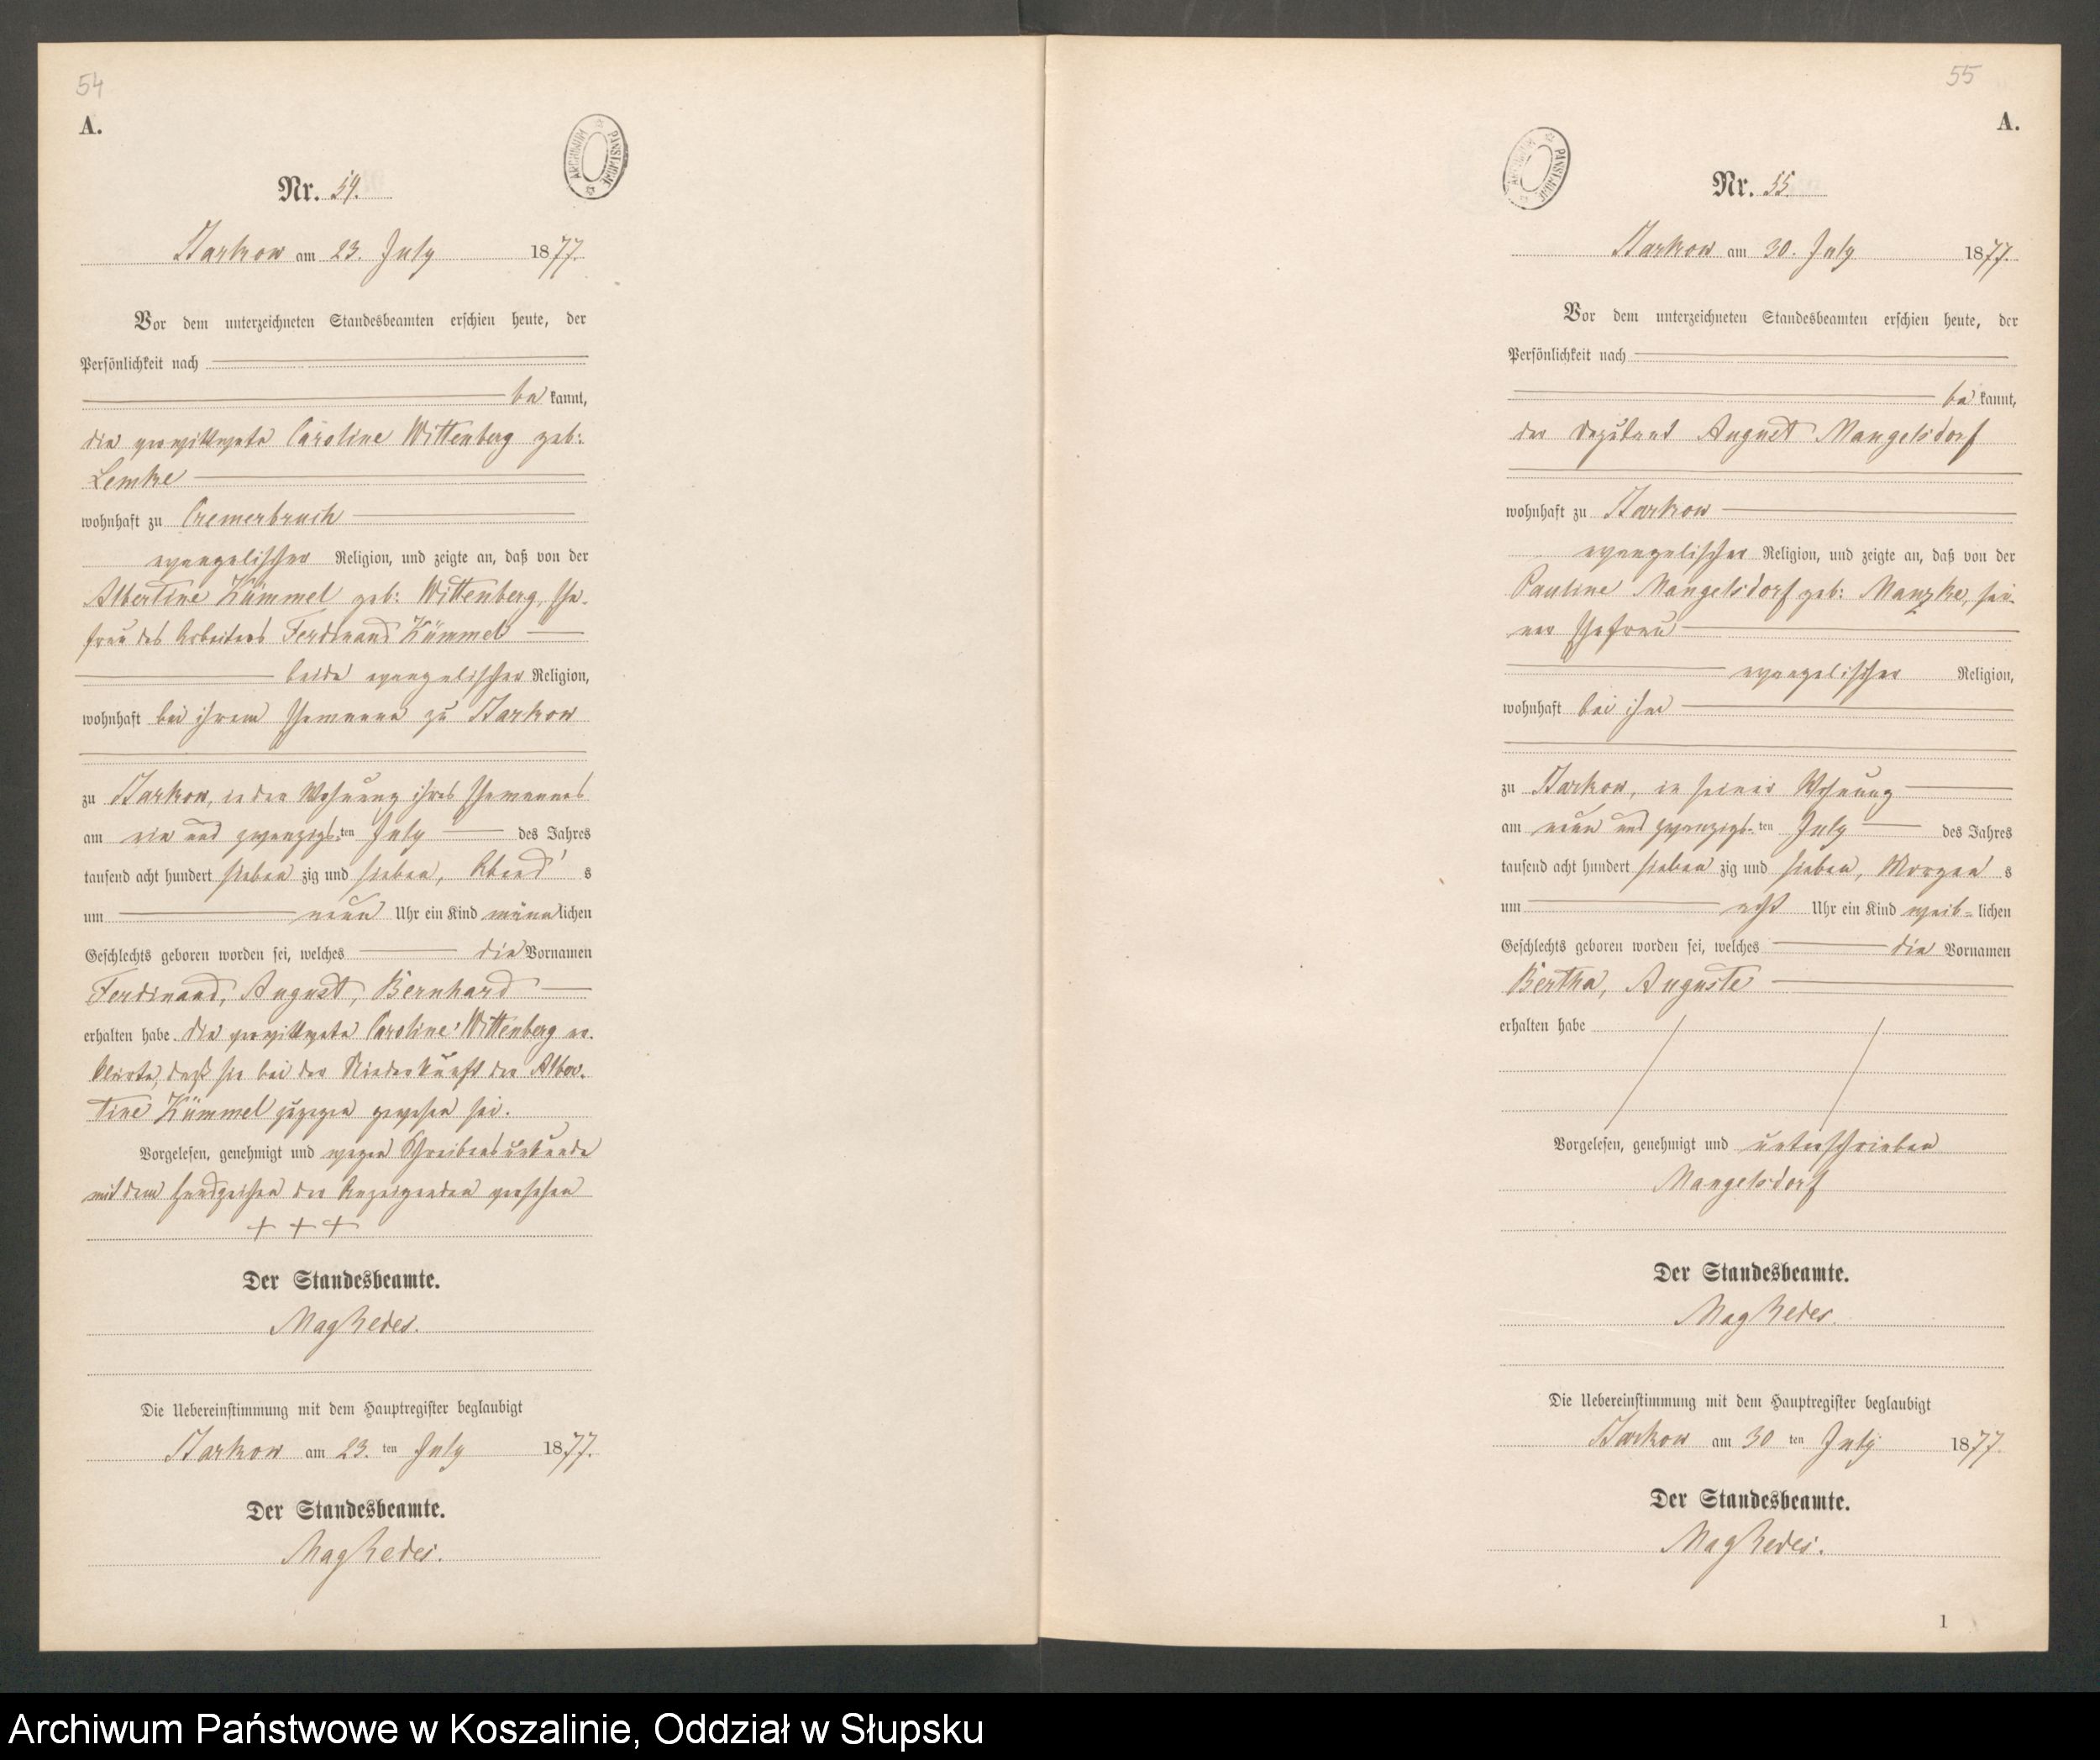 54
A.
ARCHIWUM PAŃSTWOWE
Nr. 54.
Starkow am 23. July 1877.
Vor dem unterzeichneten Standesbeamten erschien heute, der
Persönlichkeit nach
be kannt,
die verwittwete Caroline Wittenberg geb:
Lemke
wohnhaft zu Cremerbruch
evangelischer Religion, und zeigte an, daß von der
Albertine Kümmel geb: Wittenberg, Ehe-
frau des Arbeiters Ferdinand Kümmel
beide evangelischer Religion,
wohnhaft bei ihrem Ehemanne zu Starkow
zu Starkow, in der Wohnung ihres Ehemannes
am ein und zwanzigs-ten July des Jahres
tausend acht hundert sieben zig und sieben, Abend s
um neun Uhr ein Kind männlichen
Geschlechts geboren worden sei, welches die Vornamen
Ferdinand, August, Bernhard
erhalten habe. Die verwittwete Caroline Wittenberg er-
klärte, daß sie bei der Niederkunft der Alber-
tine Kümmel zugegen gewesen sei.
Vorgelesen, genehmigt und wegen Schreibensunkunde
mit dem Handzeichen der Anzeigenden versehen
+ + +
Der Standesbeamte.
Der Uebereinstimmung mit dem Hauptregister beglaubigt
Starkow am 23. ten July 1877.
Der Standesbeamte.
55
A.
ARCHIWUM PAŃSTWOWE
Nr. 55.
Starkow am 30. July 1877.
Vor dem unterzeichneten Standesbeamten erschien heute, der
Persönlichkeit nach
be kannt,
der Deputant August Mangelsdorf
wohnhaft zu Starkow
evangelischer Religion, und zeigte an, daß von der
Pauline Mangelsdorf geb: Manzke, sei-
ner Ehefrau
evangelischer Religion,
wohnhaft bei ihm
zu Starkow, in seiner Wohnung
am neun und zwanzigs-ten July des Jahres
tausend acht hundert sieben zig und sieben, Morgen s
um acht Uhr ein Kind weib-lichen
Geschlechts geboren worden sei, welches die Vornamen
Bertha, Auguste
erhalten habe
Vorgelesen, genehmigt und unterschrieben
Mangelsdorf
Der Standesbeamte.
Die Uebereinstimmung mit dem Hauptregister beglaubigt
Starkow am 30 ten July 1877.
Der Standesbeamte.
1
Archiwum Państwowe w Koszalinie, Oddział w Słupsku